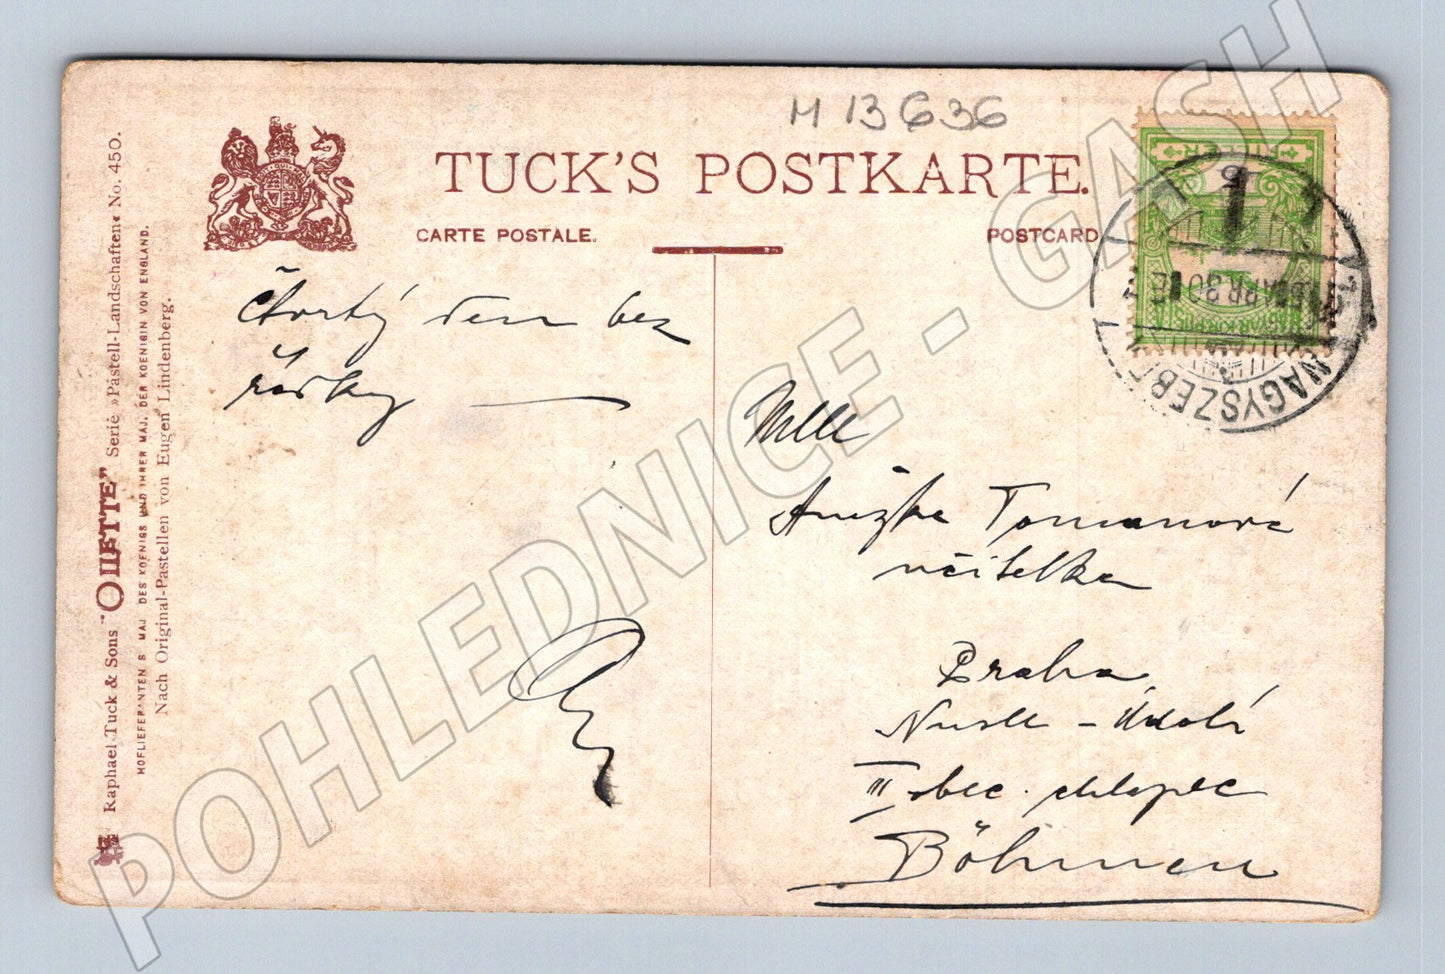 M 13 636
TUCK'S POSTKARTE.
CARTE POSTALE.
POSTCARD
Raphael Tuck & Sons "OILETTE" Serie »Pastell-Landschaften« No. 450.
HOFLIEFERANTEN S MAJ DES KOENIGS UND IHRER MAJ. DER KOENIGIN VON ENGLAND.
Nach Original-Pastellen von Eugen Lindenberg.
čtvrtý den bez
řádky
Mlle
Anežka Tomanová
učitelka
Praha
Nusle - Údolí
III obec. chlapec
Böhmen
FILLÉR
NAGYSZEB
POHLEDNICE - GASH